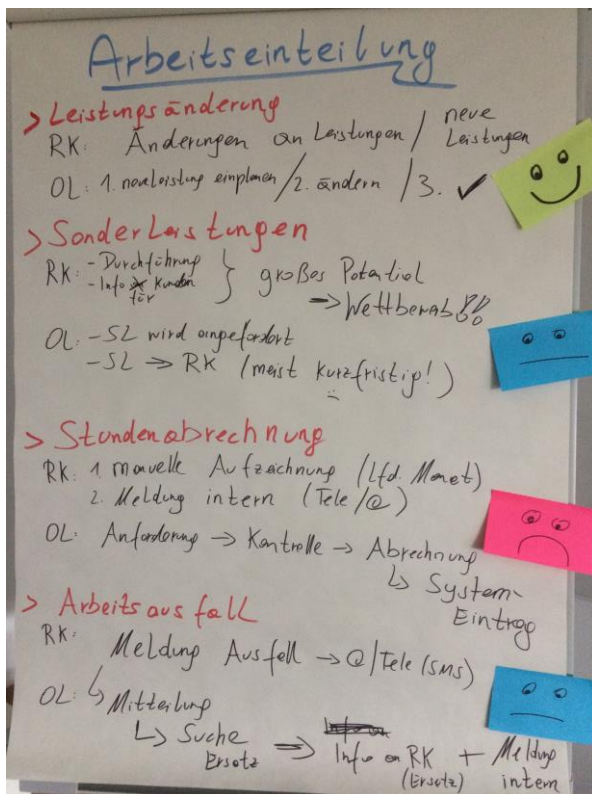 Arbeitseinteilung
> Leistungsänderung
RK: Änderungen an Leistungen / neue Leistungen
OL: 1. neue Leistung einplanen / 2. ändern / 3. ✓
> Sonderleistungen
RK: - Durchführung
- Info für Kunden } großes Potential
=> Wettbewerb!!
OL: - SL wird angefordert
- SL => RK (meist kurzfristig!)
> Stundenabrechnung
RK: 1. manuelle Aufzeichnung (Lfd. Monat)
2. Meldung intern (Tele/@)
OL: Anforderung → Kontrolle → Abrechnung
↳ System-
Eintrag
> Arbeitsausfall
RK: Meldung Ausfall → @/Tele (SMS)
OL: ↳ Mitteilung
↳ Suche Ersatz => Info an RK (Ersatz) + Meldung intern